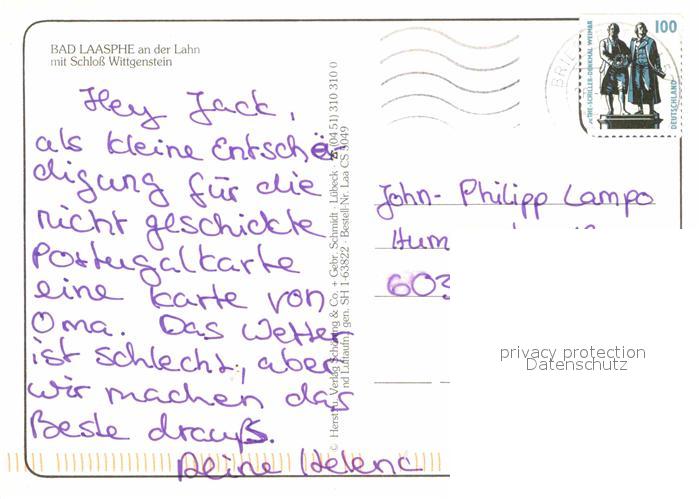 BAD LAASPHE an der Lahn
mit Schloß Wittgenstein
Hey Jack,
als kleine Entschä-
digung für die
nicht geschickte
Portugalkarte
eine Karte von
Oma. Das Wetter
ist schlecht, aber
wir machen das
Beste drauß.
Deine Helena
© Herst. u. Verlag Schöning & Co. + Gebr. Schmidt · Lübeck (0451) 310 310 0
Luftaufn. gen. SH 1-63822 · Bestell-Nr. Laa CS 3049
100
GOETHE-SCHILLER-DENKMAL WEIMAR
DEUTSCHLAND
BRIE
John-Philipp Lampo
Hum
603
privacy protection
Datenschutz